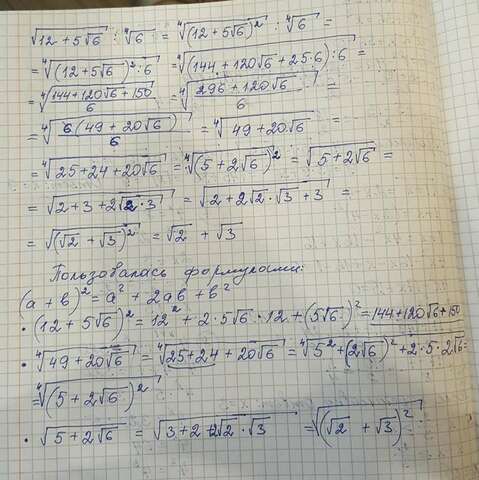 √(12 + 5√6) : ⁴√6 = ⁴√((12 + 5√6)²) : ⁴√6 =
= ⁴√((12 + 5√6)² : 6) = ⁴√((144 + 120√6 + 25·6) : 6) =
= ⁴√((144 + 120√6 + 150)/6) = ⁴√((296 + 120√6)/6) =
= ⁴√(6(49 + 20√6)/6) = ⁴√(49 + 20√6) =
= ⁴√(25 + 24 + 20√6) = ⁴√((5 + 2√6)²) = √(5 + 2√6) =
= √(2 + 3 + 2√(2·3)) = √(2 + 2√2·√3 + 3) =
= √((√2 + √3)²) = √2 + √3
Пользовалась формулами:
(a + b)² = a² + 2ab + b²
• (12 + 5√6)² = 12² + 2·5√6·12 + (5√6)² = 144 + 120√6 + 150
• ⁴√(49 + 20√6) = ⁴√(25 + 24 + 20√6) = ⁴√(5² + (2√6)² + 2·5·2√6) =
= ⁴√((5 + 2√6)²)
• √(5 + 2√6) = √(3 + 2 + 2√2·√3) = √((√2 + √3)²)